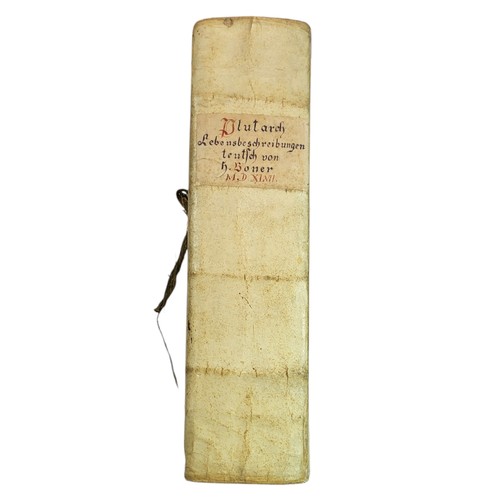 Plutarch
Lebensbeschreibungen
teutsch von
H. Boner